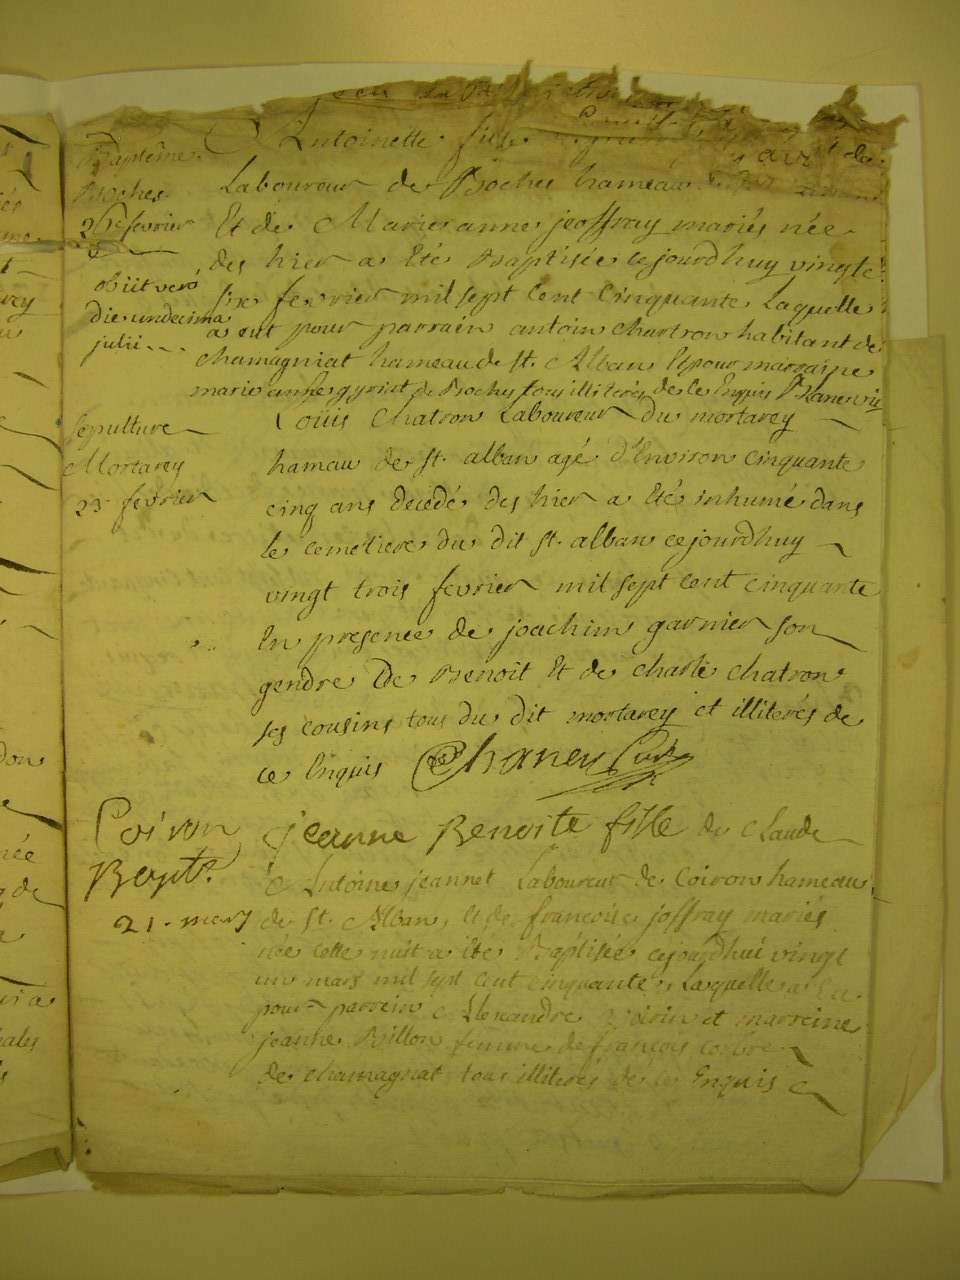 Baptême
Roches
26e fevrier
obiit vero
die undecima
julii
Antoinette fille
Laboureur de Roches hameau
Et de Marie anne jeoffray mariés née
des hier a Eté Baptisée cejourdhuy vingt
six fevrier mil sept cent cinquante Laquelle
a eut pour parrain antoine chartron habitant de
chamagniat hameau de st. Alban Et pour marraine
marie anne de Roches tous illiterés de ce Enquis
sepulture
Mortarey
23 fevrier
Louis Chatron Laboureur du mortarey
hamau de st. alban agé d'Environ cinquante
cinq ans decedé des hier a Eté inhumé dans
le cemetiere du dit st. alban cejourdhuy
vingt trois fevrier mil sept cent cinquante
En presence de joachim garnier son
gendre De Benoit Et de charle chatron
ses cousins tous du dit mortarey et illiterés de
ce Enquis Chanen Curé
Coiron
Bapt.
21. mars
jeanne Benoite fille de Claude
Antoine jeannet Laboureur de Coiron hameau
de st. Alban, Et de francoise joffray mariés
née cette nuit a été Baptisée cejourdhui vingt
un mars mil sept cent cinquante, Laquelle a Eu
pour parrein Alexandre et marreine
jeanne Billon femme de francois
de chamagnat tous illiterés de ce Enquis